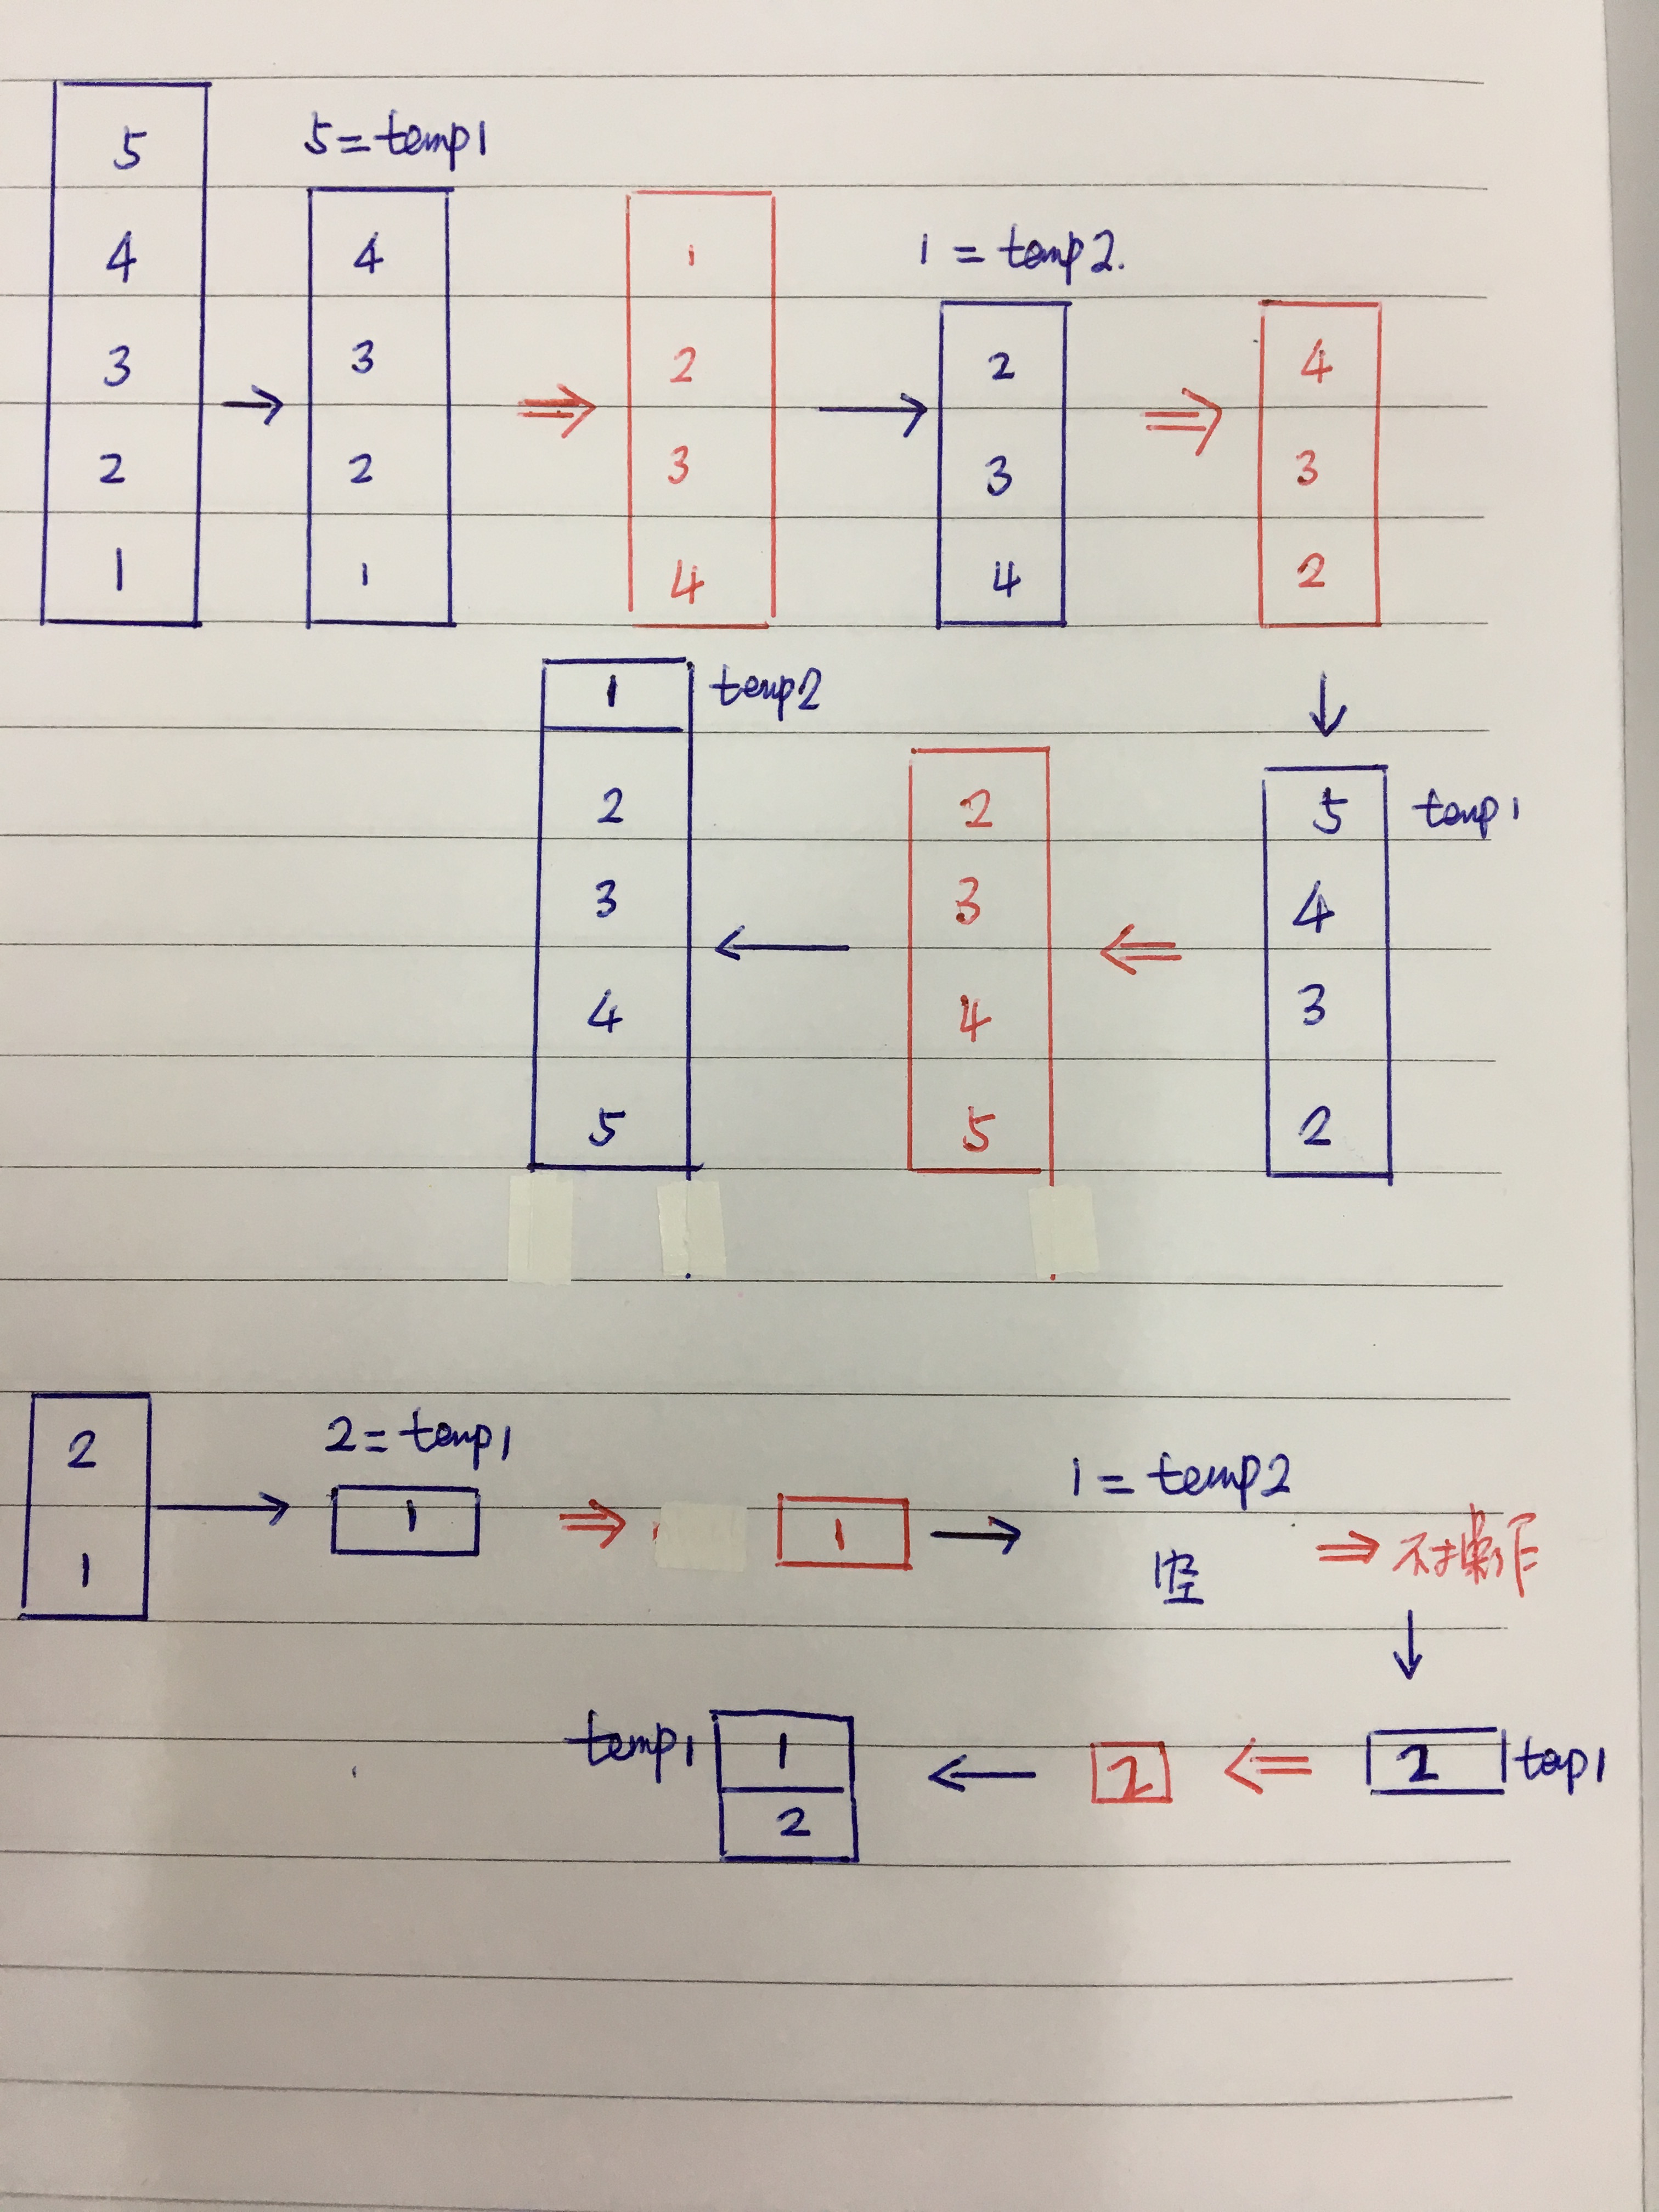 5 4 3 2 1
5=temp1
4 3 2 1
1 2 3 4
1 = temp2.
2 3 4
4 3 2
5 4 3 2 temp1
2 3 4 5
1 2 3 4 5 temp2
2 1
2=temp1
1
1
1 = temp2
空
不操作
2 tap1
2
temp1 1 2